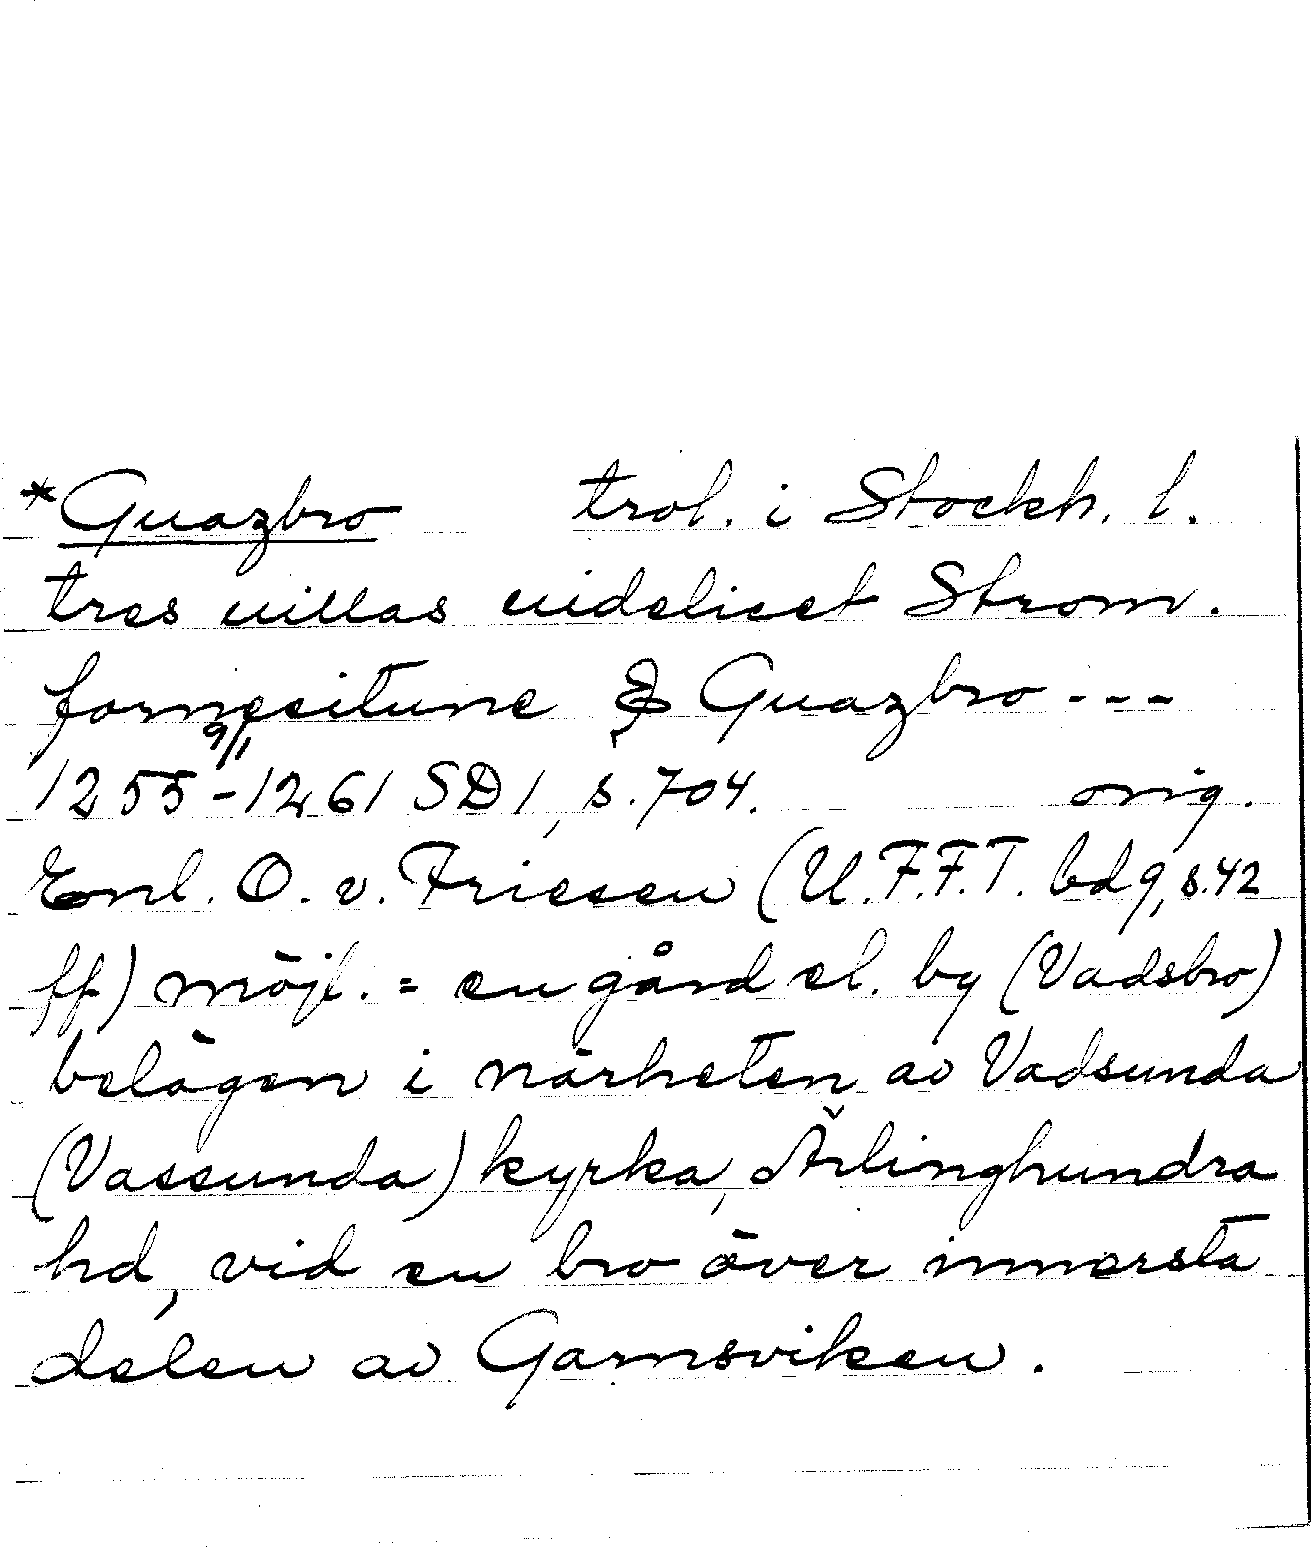 *Guazbro trol. i Stockh. l.
tres uillas uidelicet Strom.
fornesitune & Guazbro---
1255-9/1 1261 SD1, s.704. orig.
Enl. O. v. Friesen (U.F.F.T. bd9, s.42
ff) möjl. = en gård el. by (Vadsbro)
belägen i närheten av Vadsunda
(Vassunda) kyrka, Ärlinghundra
hd, vid en bro över innersta
delen av Garnsviken.